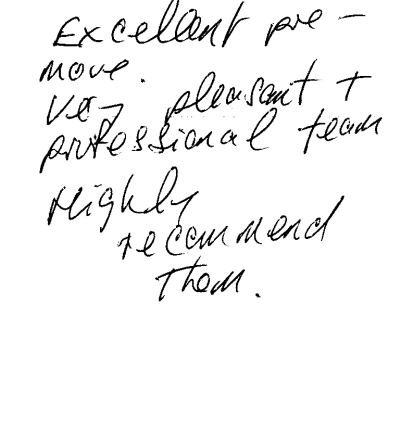 Excellent pre-
move.
Very pleasant +
professional team
Highly
recommend
them.